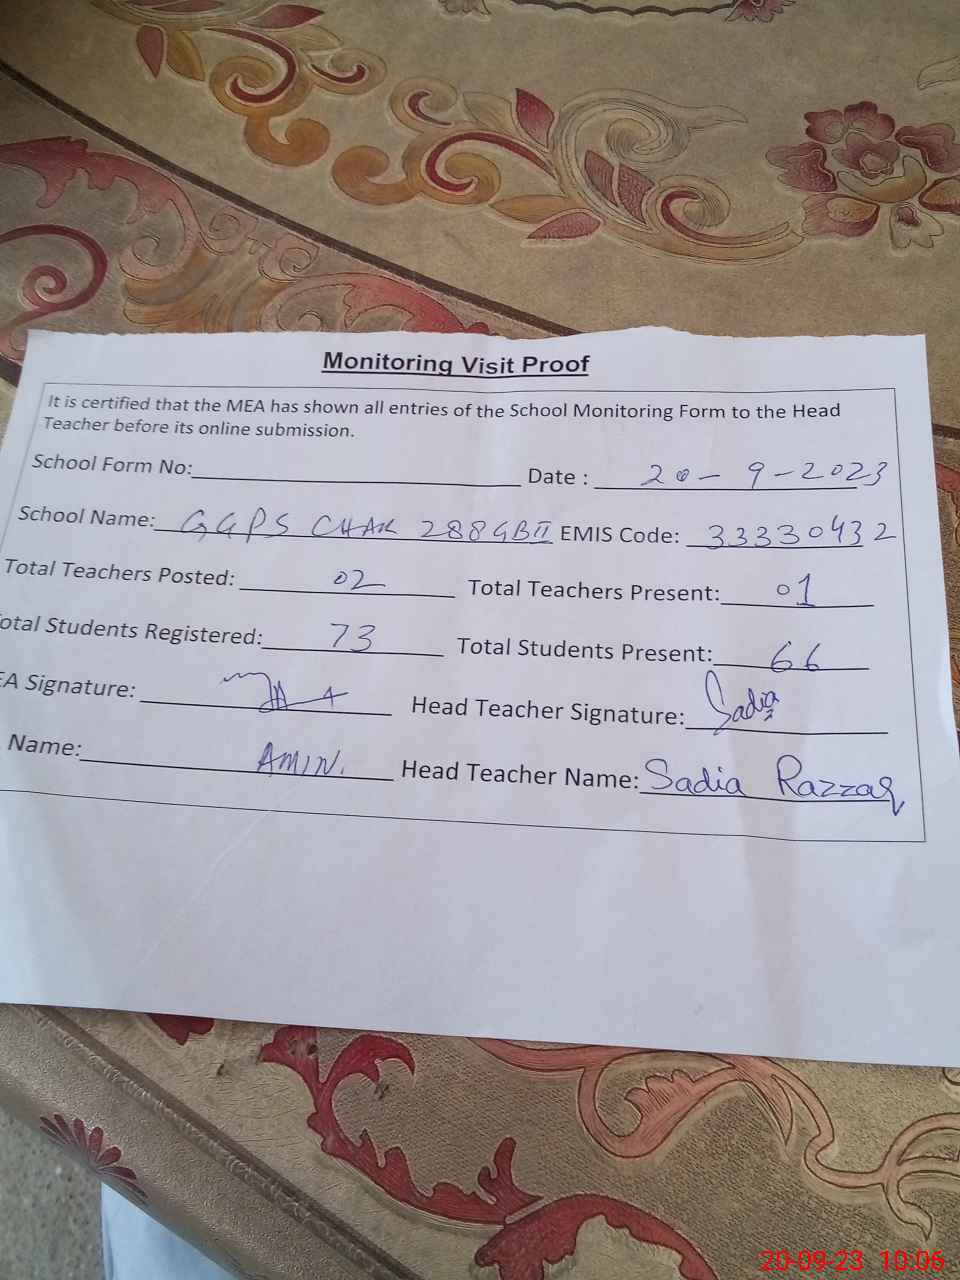 Monitoring Visit Proof
It is certified that the MEA has shown all entries of the School Monitoring Form to the Head
Teacher before its online submission.
School Form No: Date : 20-9-2023
School Name: GGPS CHAK 288GBII EMIS Code: 33330432
Total Teachers Posted: 02 Total Teachers Present: 01
otal Students Registered: 73 Total Students Present: 66
EA Signature: Head Teacher Signature: Sadia
Name: AMIN. Head Teacher Name: Sadia Razzaq
20-09-23 10:06